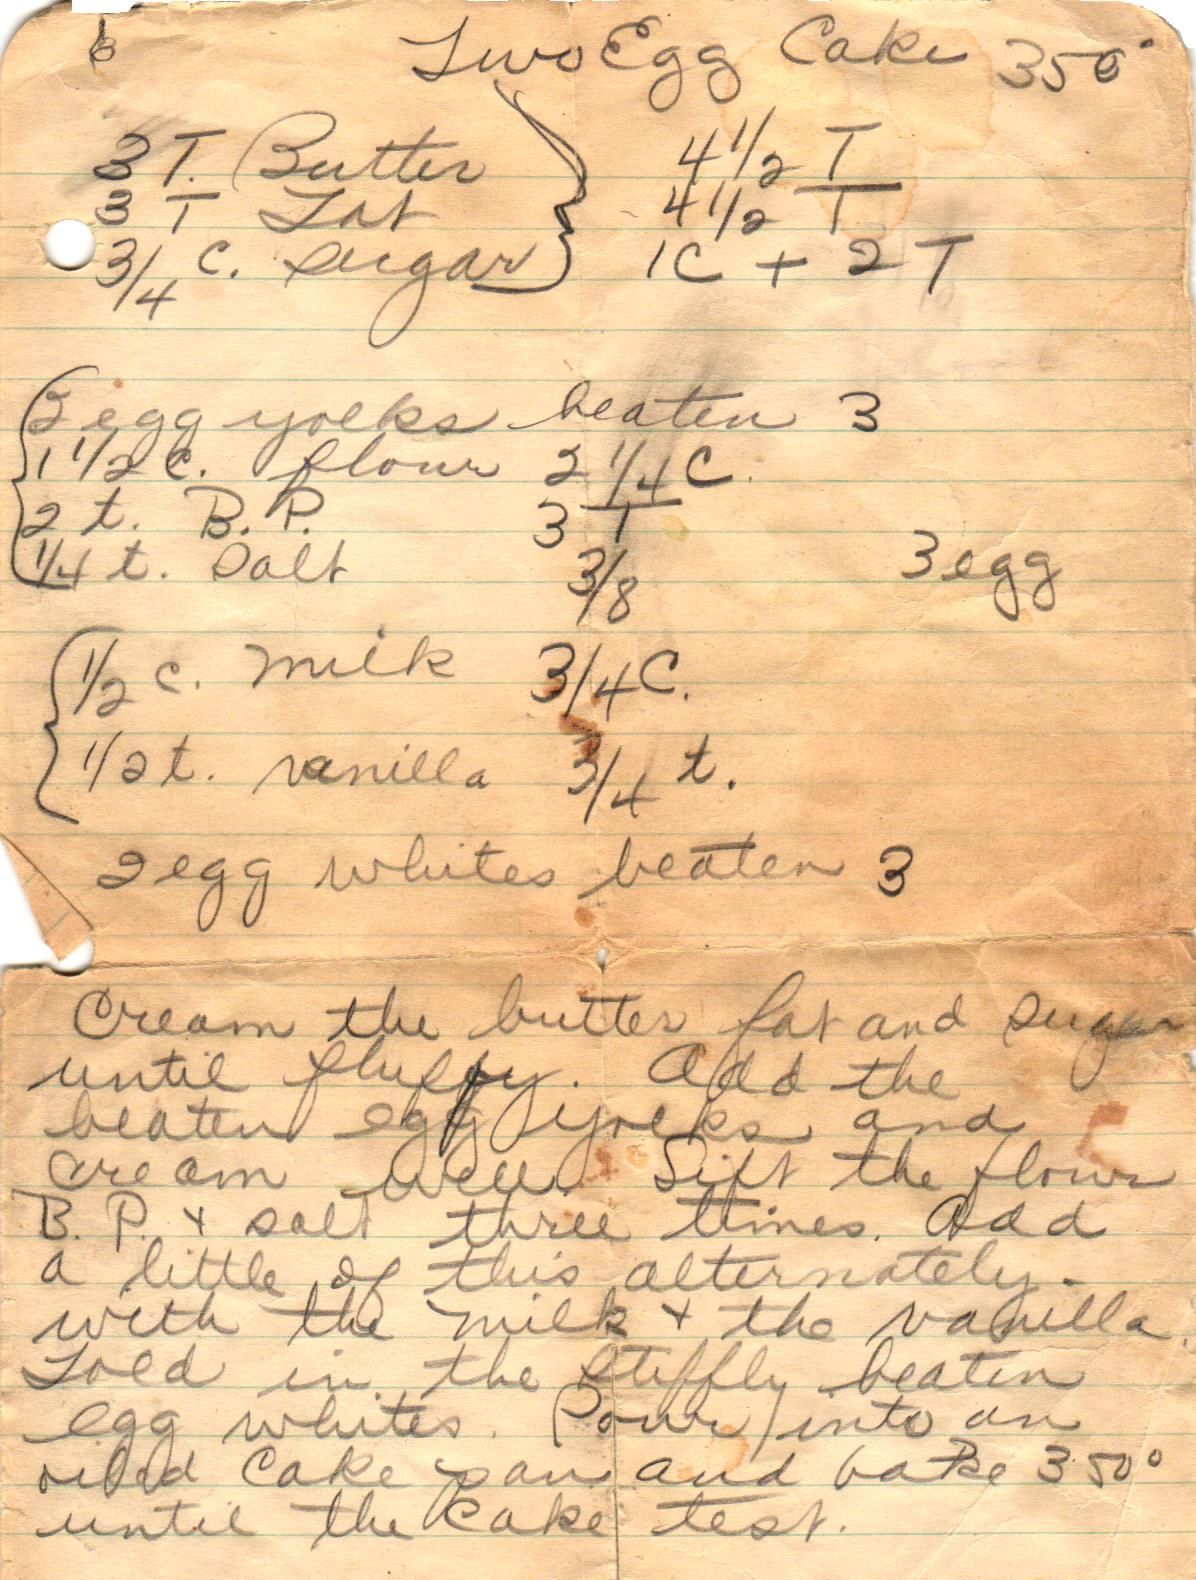 6
Two Egg Cake 350°
3 T. Butter 4 1/2 T
3 T Fat 4 1/2 T
3/4 C. sugar 1C + 2 T
2 egg yolks beaten 3
1 1/2 c. flour 2 1/4 C.
2 t. B.P. 3 T
1/4 t. Salt 3/8
3 egg
1/2 c. milk 3/4 C.
1/2 t. vanilla 3/4 t.
2 egg whites beaten 3
Cream the butter fat and sugar
until fluffy. Add the
beaten egg yolks and
cream well. Sift the flour
B. P. + salt three times. Add
a little of this alternately-
with the milk + the vanilla.
Fold in the stiffly beaten
egg whites. Pour into an
oiled cake pan and bake 350°
until the cake test.